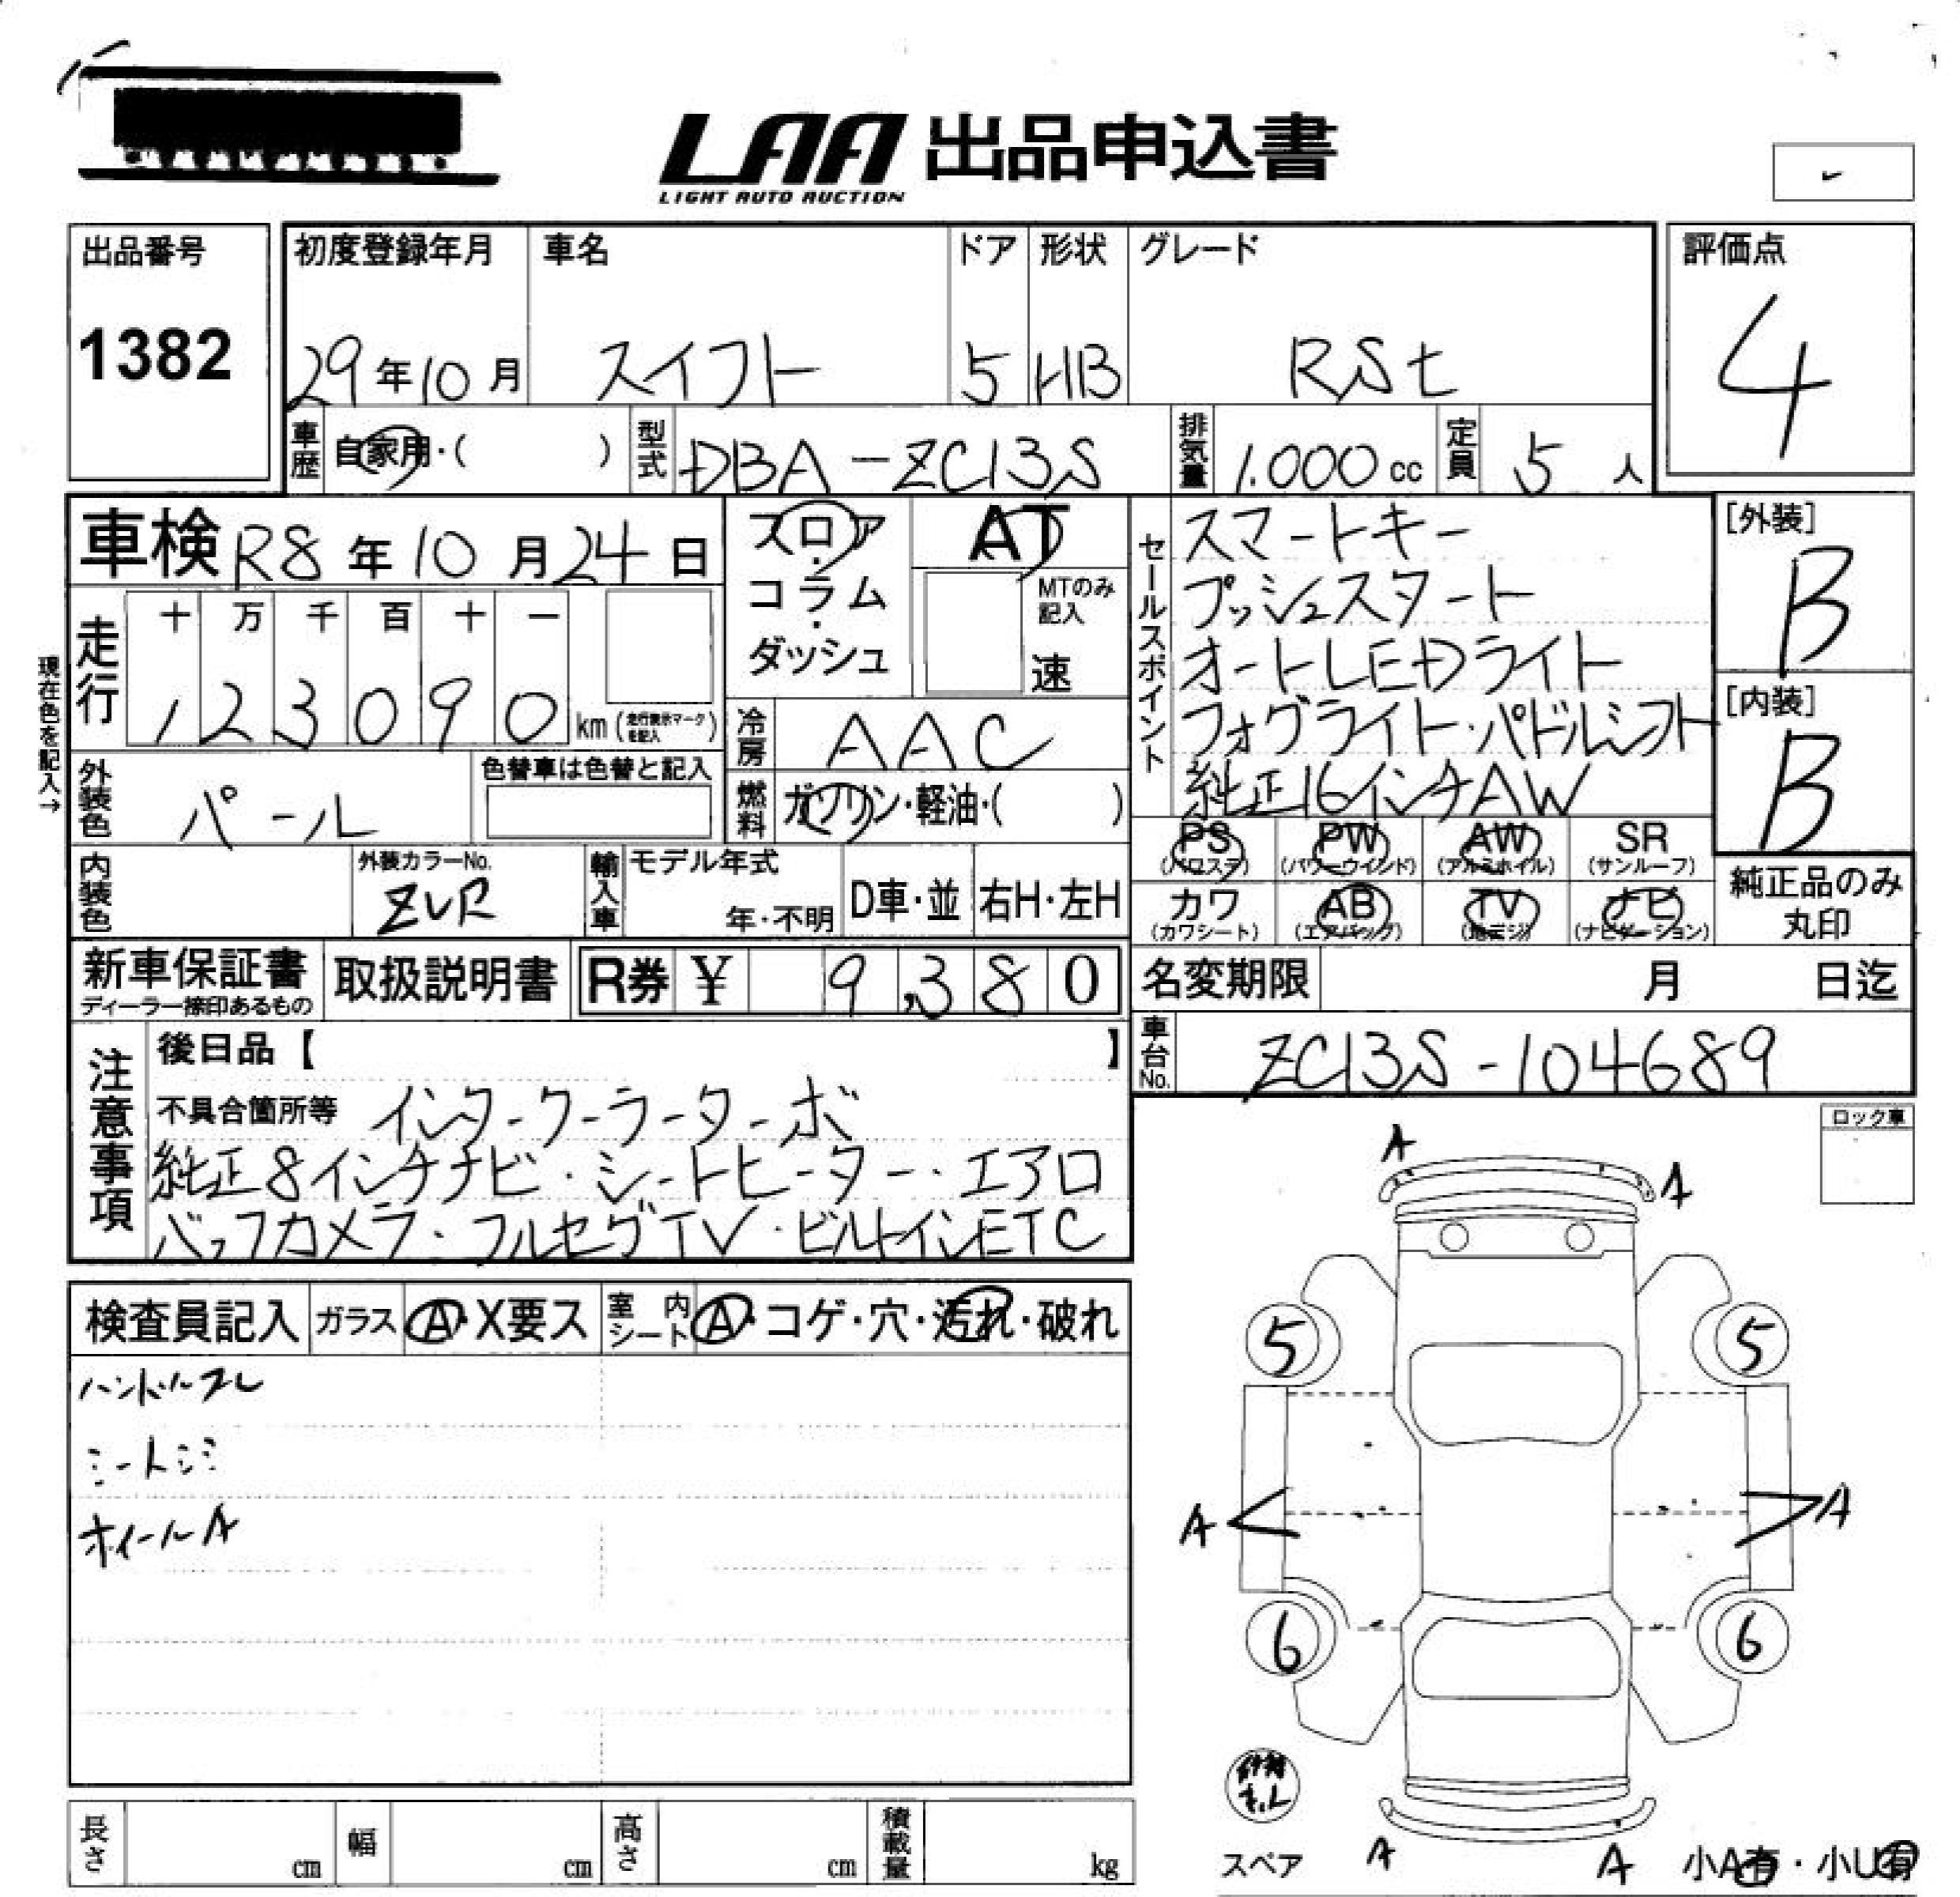 LAA 出品申込書
LIGHT AUTO AUCTION
出品番号
1382
初度登録年月 車名 ドア 形状 グレード
29年10月 スイフト 5 HB RSt
評価点
4
車歴 自家用・( ) 型式 DBA-ZC13S 排気量 1.000cc 定員 5人
車検 R8年10月24日
フロア・コラム・ダッシュ
AT
MTのみ記入
速
現在色を記入→
走行 十 万 千 百 十 一
123090 km (走行表示マークを記入)
冷房 AAC
外装色 パール
色替車は色替と記入
燃料 ガソリン・軽油・( )
セールスポイント
スマートキー
プッシュスタート
オートLEDライト
フォグライト・パドルシフト
純正16インチAW
[外装]
B
[内装]
B
PS (パワステ) PW (パワーウインド) AW (アルミホイル) SR (サンルーフ)
カワ (カワシート) AB (エアバック) TV (地デジ) ナビ (ナビゲーション)
純正品のみ
丸印
内装色
外装カラーNo.
ZVR
輸入車 モデル年式 年・不明 D車・並 右H・左H
新車保証書
ディーラー捺印あるもの
取扱説明書
R券 ¥ 9,380
名変期限 月 日迄
車台No. ZC13S-104689
注意事項
後日品【 】
不具合箇所等 インタークーラーターボ
純正8インチナビ・シートヒーター・エアロ
バックカメラ・フルセグTV・ビルトインETC
ロック車
A A
検査員記入 ガラス A・X要ス 室内シート A・コゲ・穴・汚れ・破れ
ハンドルスレ
シートシミ
ホイールA
5 5
A A
6 6
スペア A A 小A有・小U有
長さ cm 幅 cm 高さ cm 積載量 kg